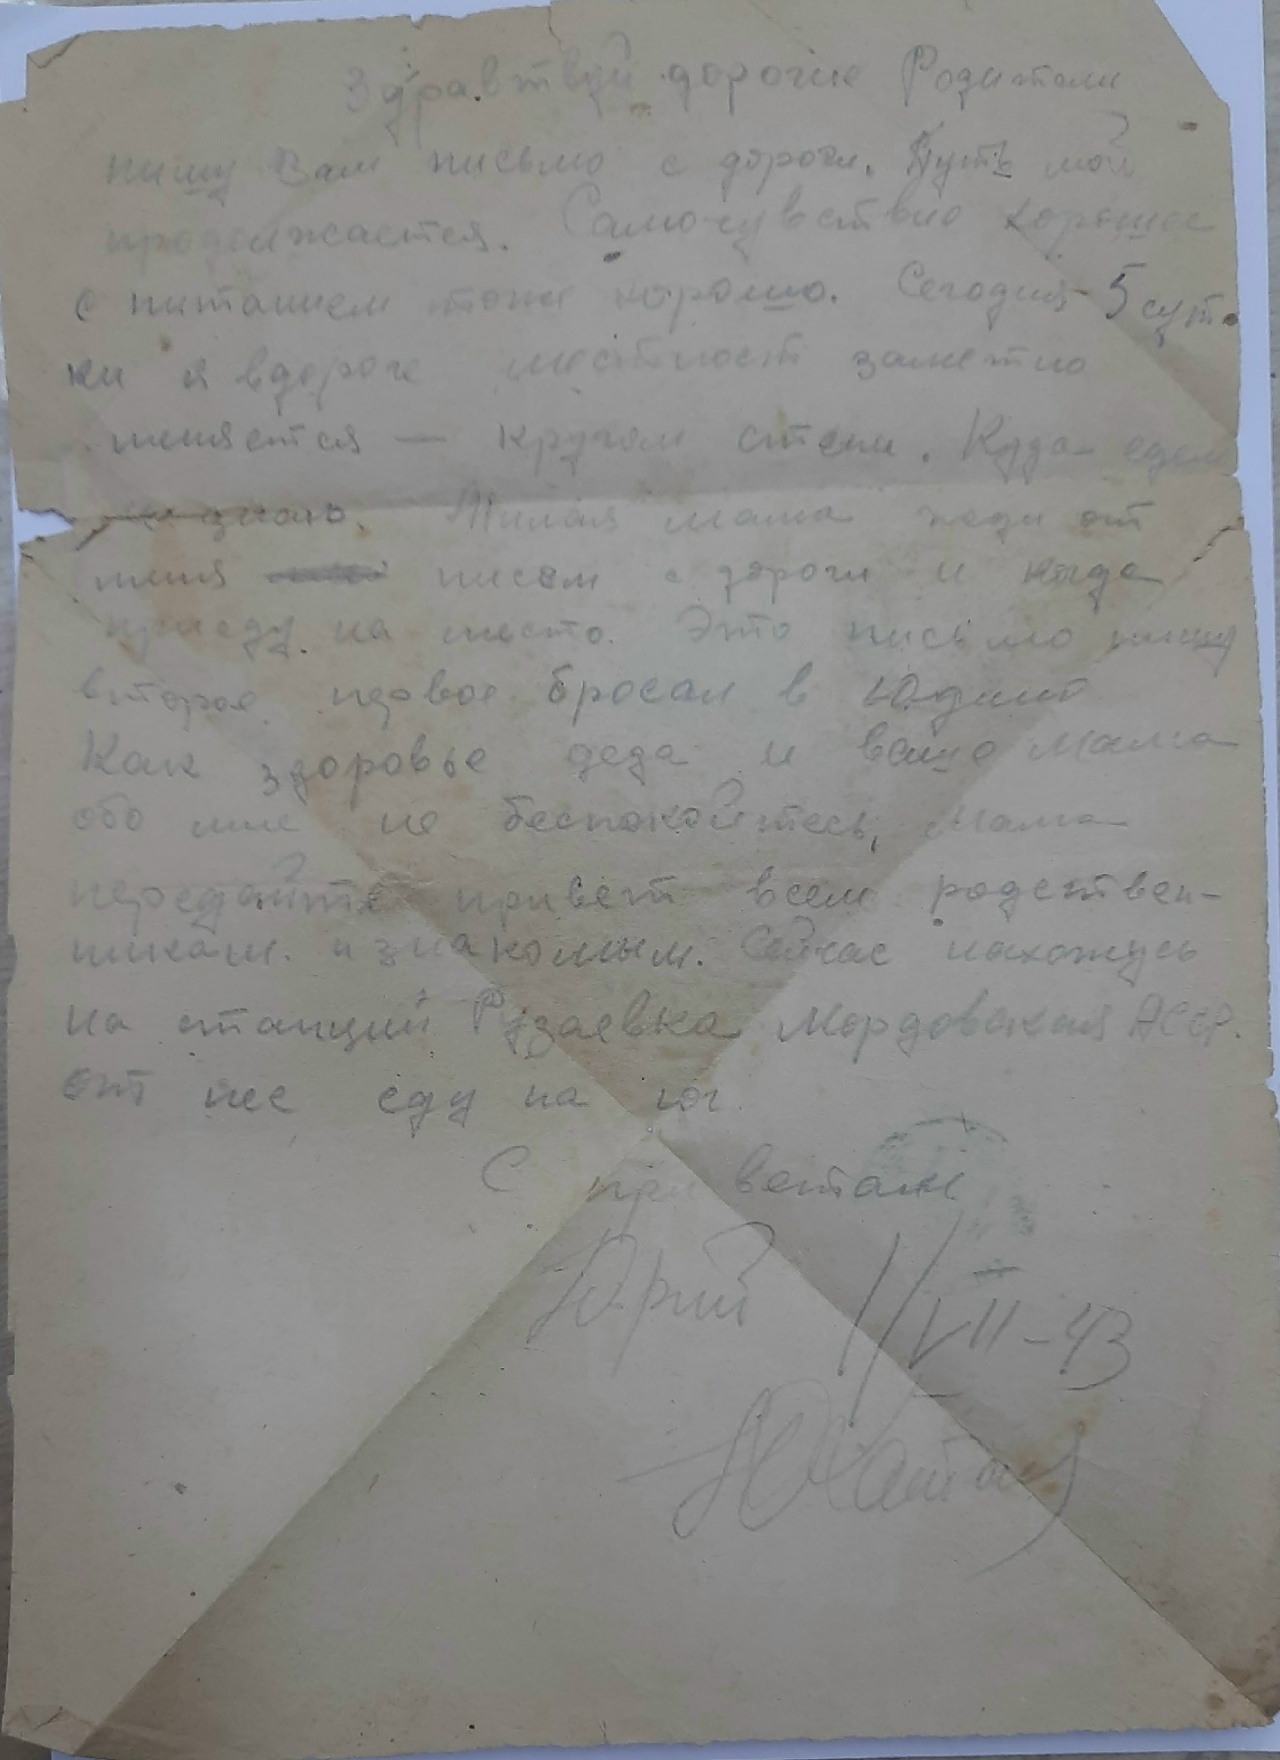 Здравствуй дорогие Родители
пишу Вам письмо с дороги. Путь мой
продолжается. Самочувствие хорошее
с питанием тоже хорошо. Сегодня 5 сут-
ки я в дороге местност заметно
меняется — кругом степи. Куда едем
не знаю. Милая мама жди от
меня писем с дороги и когда
приеду на место. Это письмо пишу
второе первое бросал в Юдино
Как здоровье деда и ваше мама
обо мне не беспокойтесь, мама
передайте привет всем родствен-
никам и знакомым. Сейчас нахожусь
на станций Рузаевка Мордовская АССР.
от нее еду на юг.
С приветом
Юрий 1/VII-43